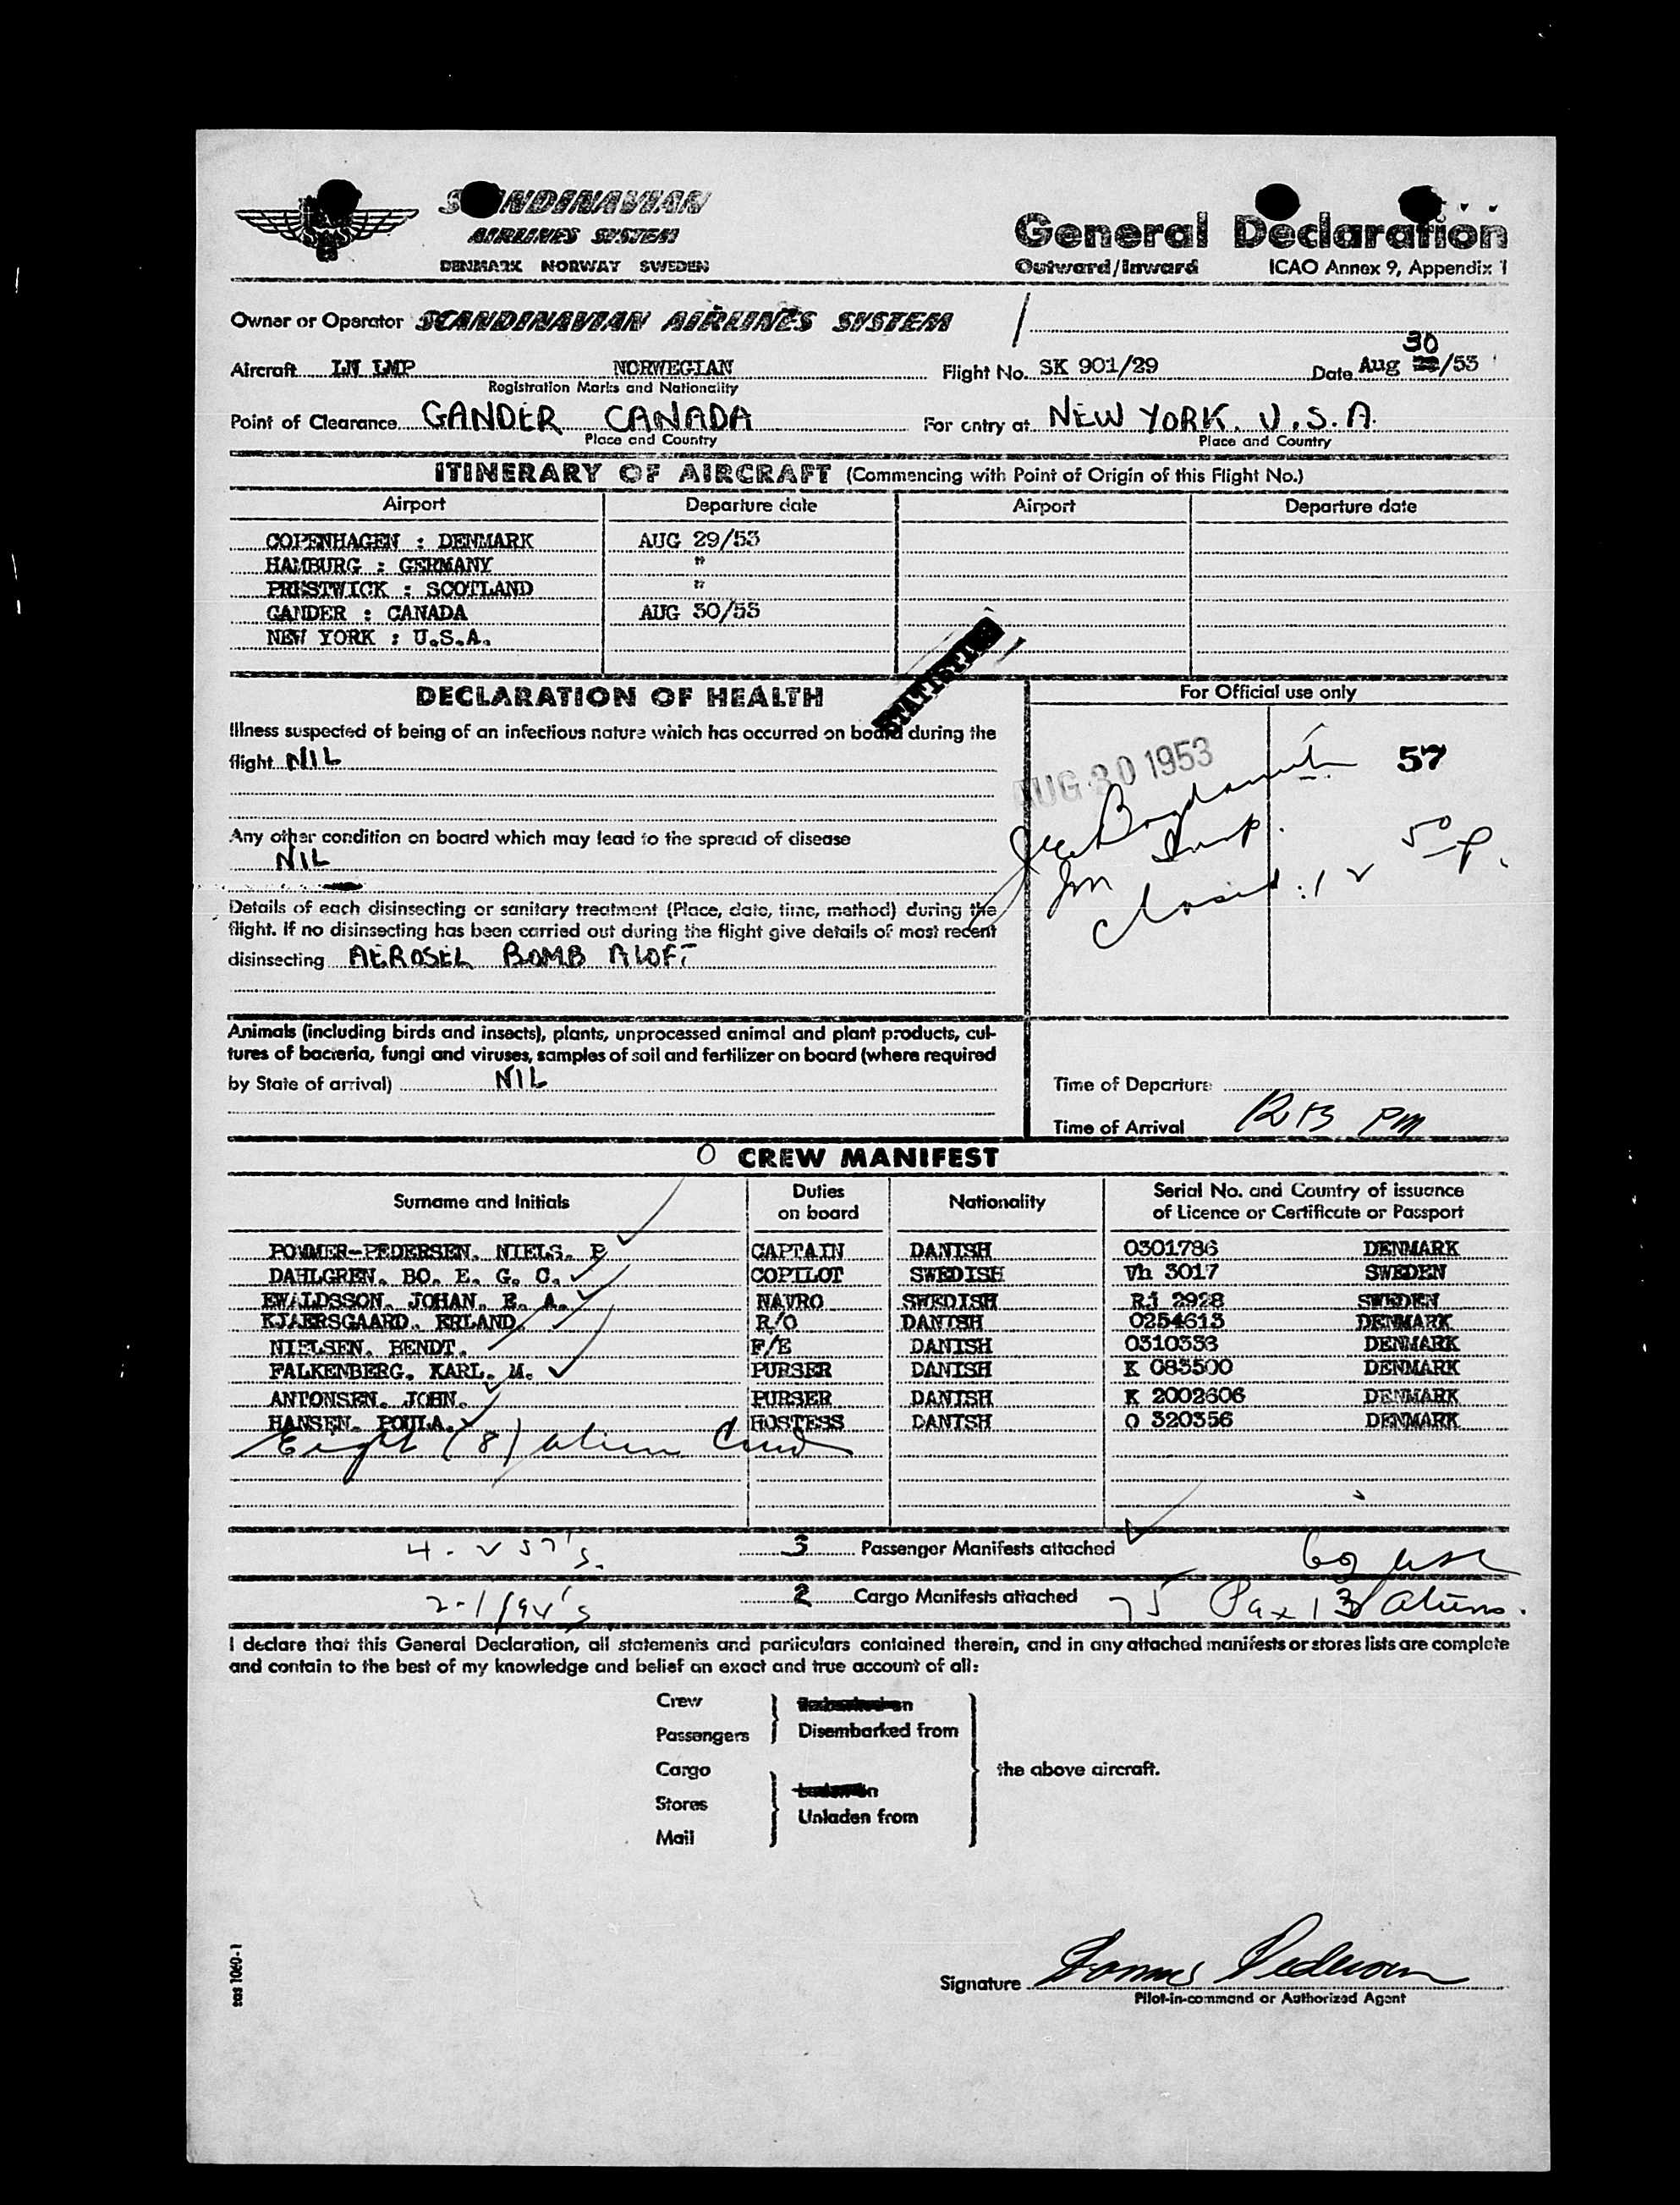 SCANDINAVIAN
AIRLINES SYSTEM
DENMARK NORWAY SWEDEN
General Declaration
Outward/Inward ICAO Annex 9, Appendix 1
Owner or Operator SCANDINAVIAN AIRLINES SYSTEM /
Aircraft LN LMP NORWEGIAN Flight No. SK 901/29 Date Aug 30/53
Registration Marks and Nationality
Point of Clearance GANDER CANADA For entry at NEW YORK. U.S.A.
Place and Country Place and Country
ITINERARY OF AIRCRAFT (Commencing with Point of Origin of this Flight No.)
Airport Departure date Airport Departure date
COPENHAGEN : DENMARK AUG 29/53
HAMBURG : GERMANY "
PRESTWICK : SCOTLAND "
GANDER : CANADA AUG 30/53
NEW YORK : U.S.A.
STATISTICS
DECLARATION OF HEALTH
Illness suspected of being of an infectious nature which has occurred on board during the
flight NIL
Any other condition on board which may lead to the spread of disease
NIL
Details of each disinsecting or sanitary treatment (Place, date, time, method) during the
flight. If no disinsecting has been carried out during the flight give details of most recent
disinsecting AEROSEL BOMB ALOFT
Animals (including birds and insects), plants, unprocessed animal and plant products, cul-
tures of bacteria, fungi and viruses, samples of soil and fertilizer on board (where required
by State of arrival) NIL
For Official use only
AUG 30 1953
57
Insp.
Time of Departure
Time of Arrival 1213 PM
O CREW MANIFEST
Surname and Initials Duties on board Nationality Serial No. and Country of issuance of Licence or Certificate or Passport
POMMER-PEDERSEN. NIELS. P. CAPTAIN DANISH 0301786 DENMARK
DAHLGREN. BO. E. G. C. COPILOT SWEDISH Vh 3017 SWEDEN
EWALDSSON. JOHAN. E. A. NAVRO SWEDISH Rj 2928 SWEDEN
KJAERSGAARD. ERLAND. R/O DANISH 0254613 DENMARK
NIELSEN. BENDT. F/E DANISH 0310333 DENMARK
FALKENBERG. KARL. M. PURSER DANISH K 083500 DENMARK
ANTONSEN. JOHN. PURSER DANISH K 2002606 DENMARK
HANSEN. POULA. HOSTESS DANISH O 320356 DENMARK
Eight (8) alien Crew
3 Passenger Manifests attached
2 Cargo Manifests attached
75 Pax 13 Aliens.
I declare that this General Declaration, all statements and particulars contained therein, and in any attached manifests or stores lists are complete
and contain to the best of my knowledge and belief an exact and true account of all:
Crew
Passengers Disembarked from
Cargo the above aircraft.
Stores Unladen from
Mail
Signature Pommer Pedersen
Pilot-in-command or Authorized Agent
sas 1060-1